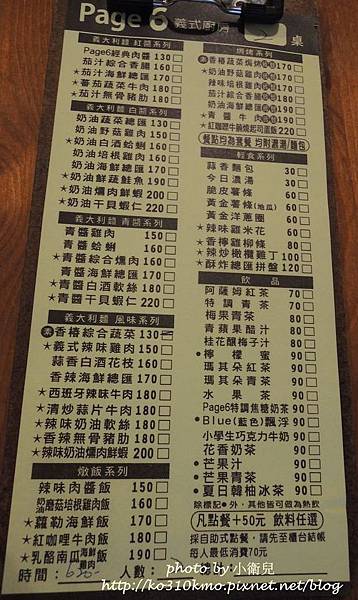 Page 6 義式廚房
桌
義大利麵 紅醬系列
Page6經典肉醬 130
茄汁綜合香腸 160
★茄汁海鮮總匯 170
★蕃茄蔬菜牛肉 180
★茄汁無骨豬肋 180
義大利麵 白醬系列
奶油蔬菜總匯 130
奶油野菇雞肉 150
★奶油白酒蛤蜊 160
奶油培根雞肉 160
奶油海鮮總匯 170
★奶油鮮蔬鮭魚 190
★奶油燻肉鮮蝦 200
★奶油干貝蝦仁 220
義大利麵 青醬系列
青醬雞肉 150
青醬蛤蜊 160
★青醬綜合燻肉 160
青醬海鮮總匯 170
★青醬白酒軟絲 180
★青醬干貝蝦仁 220
義大利麵 風味系列
素香椿綜合蔬菜 130
★義式辣味雞肉 150
蒜香白酒花枝 160
香辣海鮮總匯 170
★西班牙辣味牛肉 180
★清炒蒜片牛肉 180
★辣味奶油軟絲 180
★香辣無骨豬肋 180
★辣味奶油燻肉鮮蝦 200
燉飯系列
辣味肉醬飯 150
奶油蘑菇培根雞肉飯 160
★蘿勒海鮮飯 170
★紅咖哩牛肉飯 180
★乳酪南瓜海鮮雞肉飯 180
時間：
人數：
焗烤系列
素香椿蔬菜焗烤 170
奶油野菇雞肉 170
辣味培根雞肉 190
茄汁綜合香腸 190
奶油海鮮總匯 190
★茄汁蔬菜牛肉 200
★紅咖哩牛腩燒起司蛋飯 220
餐點均為套餐 均附濃湯/麵包
輕食系列
蒜香麵包 30
今日濃湯 30
脆皮薯條 50
黃金薯條(地瓜) 50
黃金洋蔥圈 60
★辣味雞米花 60
★香檸雞柳條 70
★辣炒橄欖雞丁 100
★酥炸總匯拼盤 120
飲品
阿薩姆紅茶 70
特調青茶 70
梅果青茶 80
青蘋果醋汁 80
桂花釀梅子汁 80
●檸檬蜜 90
瑪其朵紅茶 90
瑪其朵青茶 90
水果茶 90
Page6特調焦糖奶茶 90
●Blue(藍色)飄浮 90
小學生巧克力牛奶 90
花香奶茶 90
●芒果汁 90
●芒果青茶 90
●夏日韓柚冰茶 90
除標記●外，其他皆可做為熱飲
凡點餐+50元 飲料任選
採自助式點餐，請先至櫃台結帳
每人最低消費70元
photo by 小衛兒
http://ko310kmo.pixnet.net/blog